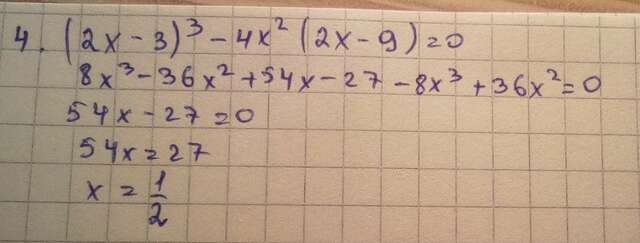 4. (2x - 3)³ - 4x² (2x - 9) = 0
8x³ - 36x² + 54x - 27 - 8x³ + 36x² = 0
54x - 27 = 0
54x = 27
x = 1/2